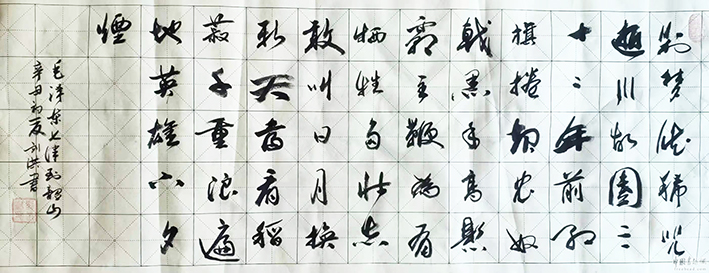 别梦依稀咒
逝川故園三
十二年前红
旗捲起农奴
戟黑手高悬
霸主鞭为有
牺牲多壮志
敢叫日月换
新天喜看稻
菽千重浪遍
地英雄下夕
煙
毛泽东七律到韶山
辛丑初夏刘洪书